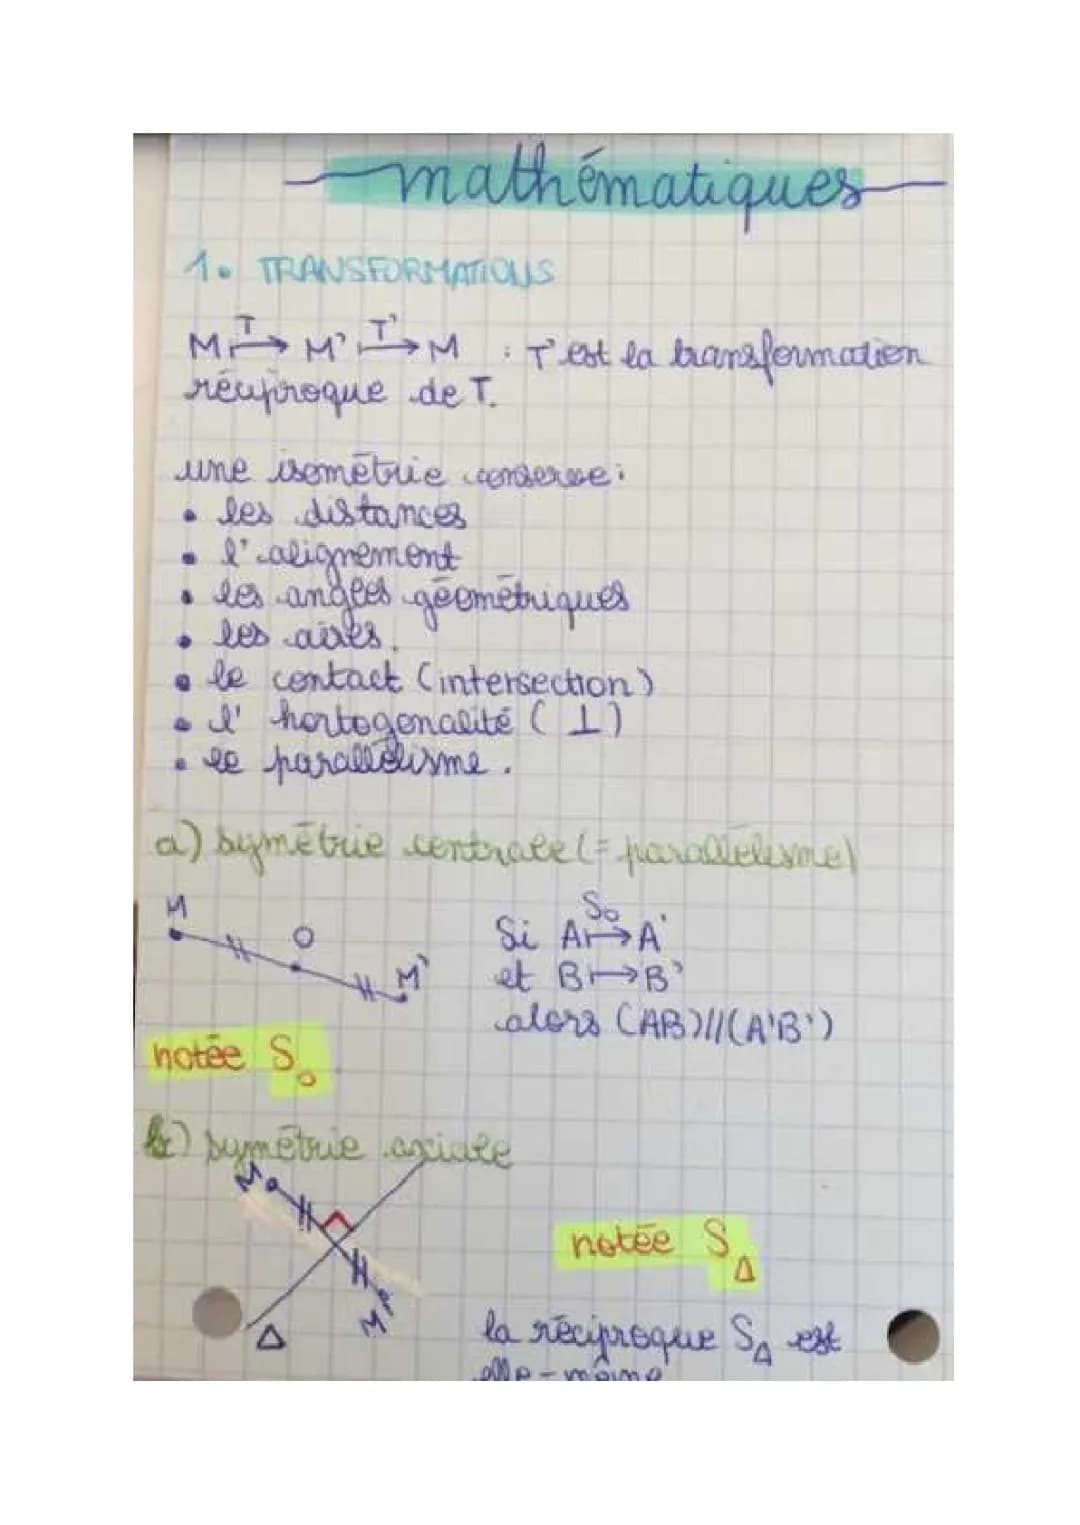 mathématiques
1. TRANSFORMATIONS
M ⟼ M' ⟼ M : T' est la transformation
T T'
réciproque de T.
une isométrie conserve :
• les distances
• l'alignement
• les angles géométriques
• les aires.
• le contact (intersection)
• l' hortogonalité (⊥)
• le parallélisme.
a) symétrie centrale (= parallélisme)
M
O
M'
So
Si A ⟼ A'
et B ⟼ B'
alors (AB)//(A'B')
notée So
b) symétrie axiale
M
M'
Δ
notée SΔ
la réciproque SΔ est
elle-même